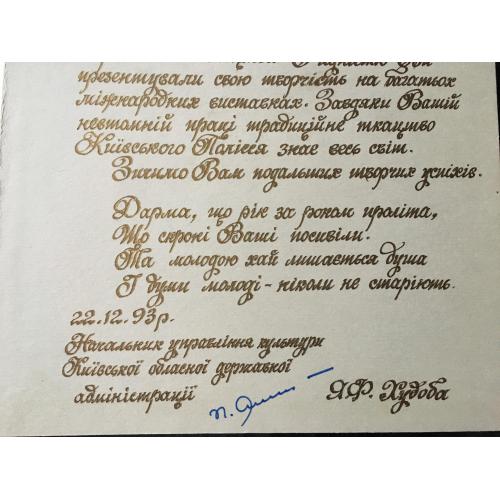 презентували свою творчість на багатьох
міжнародних виставках. Завдяки Вашій
невтомній праці традиційне ткацтво
Київського Полісся знає весь світ.
Зичимо Вам подальших творчих успіхів.
Дарма, що рік за роком проліта,
Що скроні Ваші посивіли.
Та молодою хай лишається душа
І думи молоді - ніколи не старіють.
22.12.93р.
Начальник управління культури
Київської обласної державної
адміністрації
Я.Ф. Худоба